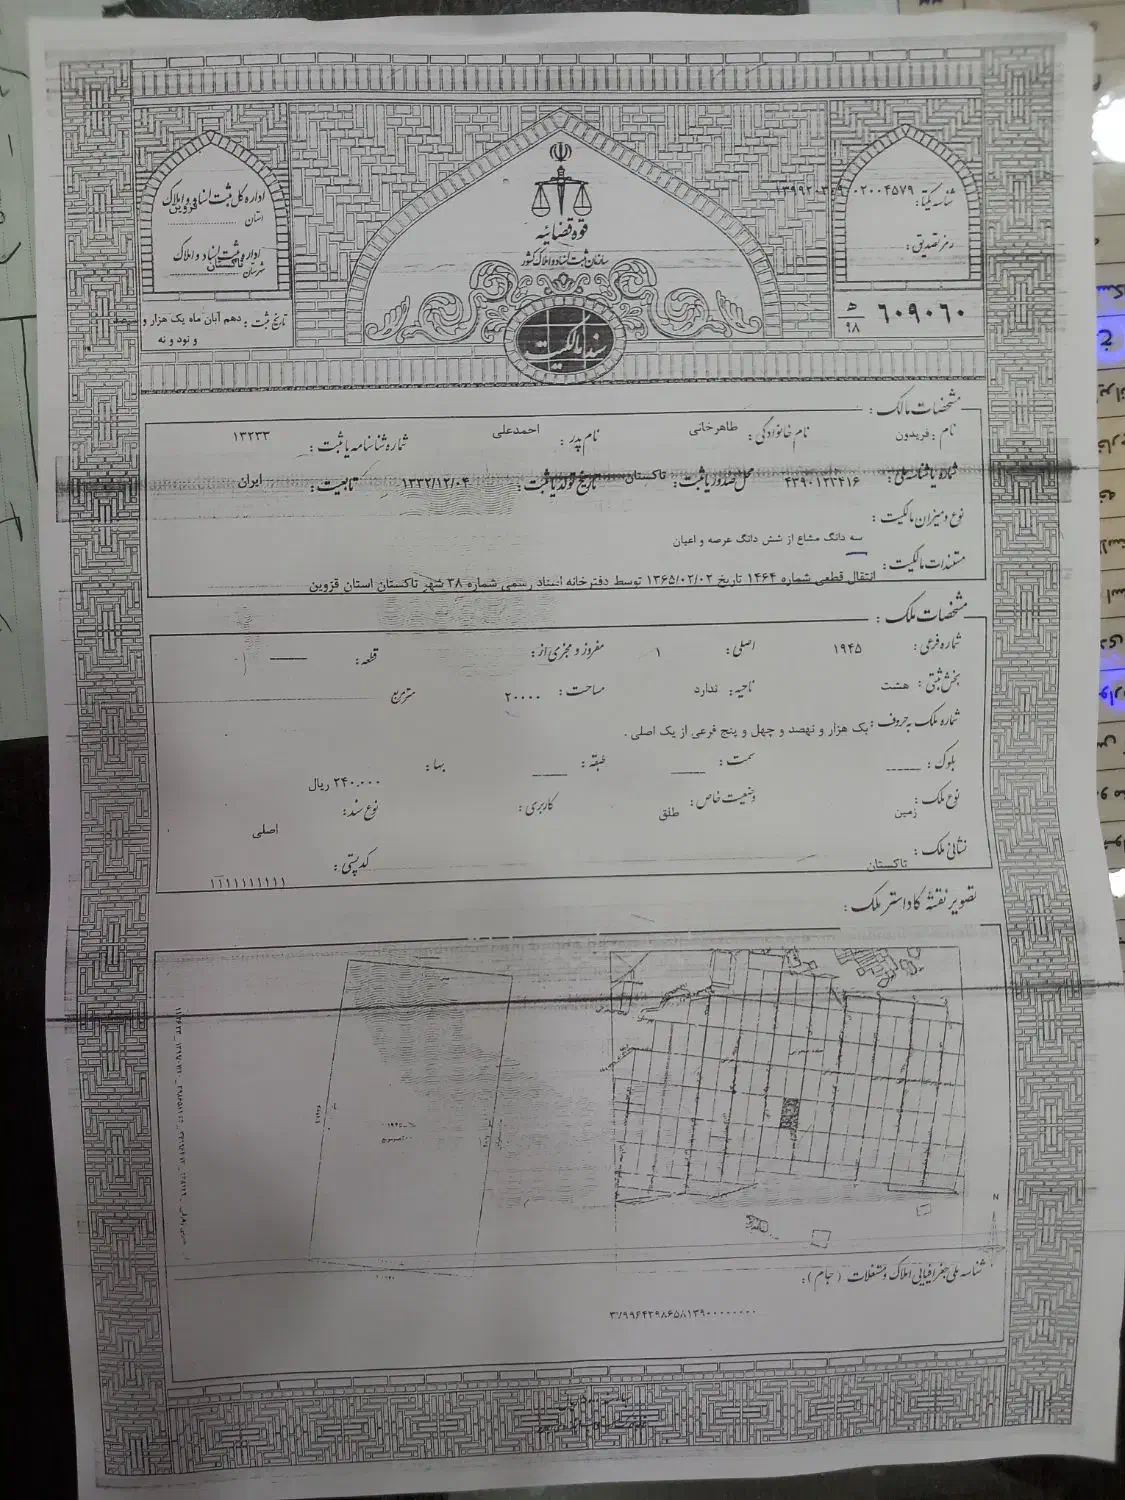 قوه قضائیه
سازمان ثبت اسناد و املاک کشور
سند مالکیت
شناسه یکتا:
رمز تصدیق:
۶۰۹۰۶۰
ه‍
۹۸
اداره کل ثبت اسناد و املاک
استان قزوین
اداره ثبت اسناد و املاک
شهرستان تاکستان
تاریخ ثبت: دهم آبان ماه یک هزار و سیصد
و نود و نه
مشخصات مالک:
نام: فریدون نام خانوادگی: طاهرخانی نام پدر: احمدعلی شماره شناسنامه یا ثبت: ۱۳۲۳۳
شماره یا شناسه ملی: محل صدور یا ثبت: تاکستان تاریخ تولد یا ثبت: ۱۳۳۲/۱۲/۰۴ تابعیت: ایران
نوع و میزان مالکیت:
سه دانگ مشاع از شش دانگ عرصه و اعیان
مستندات مالکیت:
انتقال قطعی شماره ۱۴۶۴ تاریخ ۱۳۶۵/۰۲/۰۲ توسط دفترخانه اسناد رسمی شماره ۲۸ شهر تاکستان استان قزوین
مشخصات ملک:
شماره فرعی: ۱۹۴۵ اصلی: ۱ مفروز و مجزی از: قطعه:
بخش ثبتی: هشت ناحیه: ندارد مساحت: ۲۰۰۰۰ متر مربع
شماره ملک به حروف: یک هزار و نهصد و چهل و پنج فرعی از یک اصلی .
بلوک: سمت: طبقه: بها: ۲۴۰،۰۰۰ ریال
نوع ملک: زمین وضعیت خاص: طلق کاربری: نوع سند: اصلی
نشانی ملک: تاکستان کد پستی: ۱۱۱۱۱۱۱۱۱۱
تصویر نقشه کاداستر ملک:
N
شناسه ملی جغرافیایی املاک و مستغلات (جام):